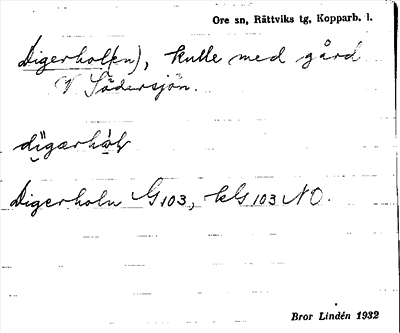 Ore sn, Rättviks tg, Kopparb. l.
Digerhol(en), kulle med gård
V Södersjön.
Digerholn G103, kG 103 NO.
Bror Lindén 1932